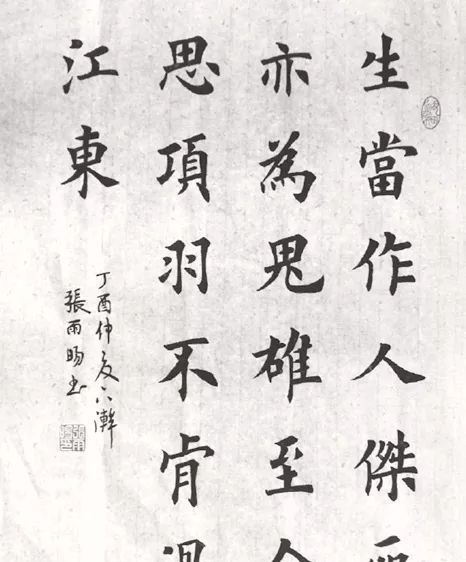 生當作人傑
亦為鬼雄至今
思項羽不肯過
江東
丁酉仲夏
張雨暘书